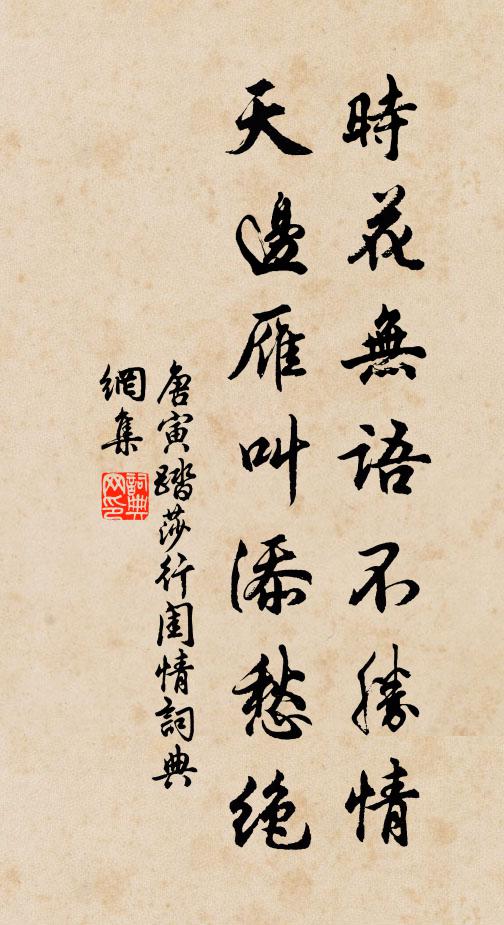 時花無語不勝情
天邊雁叫添愁絕
唐寅踏莎行閨情詞典
網集
詞典
网印